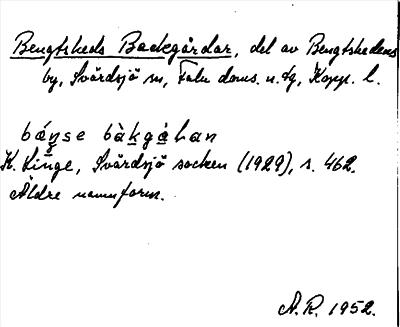 Bengtsheds Backgårdar, del av Bengtshedens
by, Svärdsjö sn, Falu doms. n. tg, Kopp. l.
bá̱ŋse bàk̠gàhan
K. Linge, Svärdsjö socken (1929), s. 462.
Äldre namnform.
A. R. 1952.